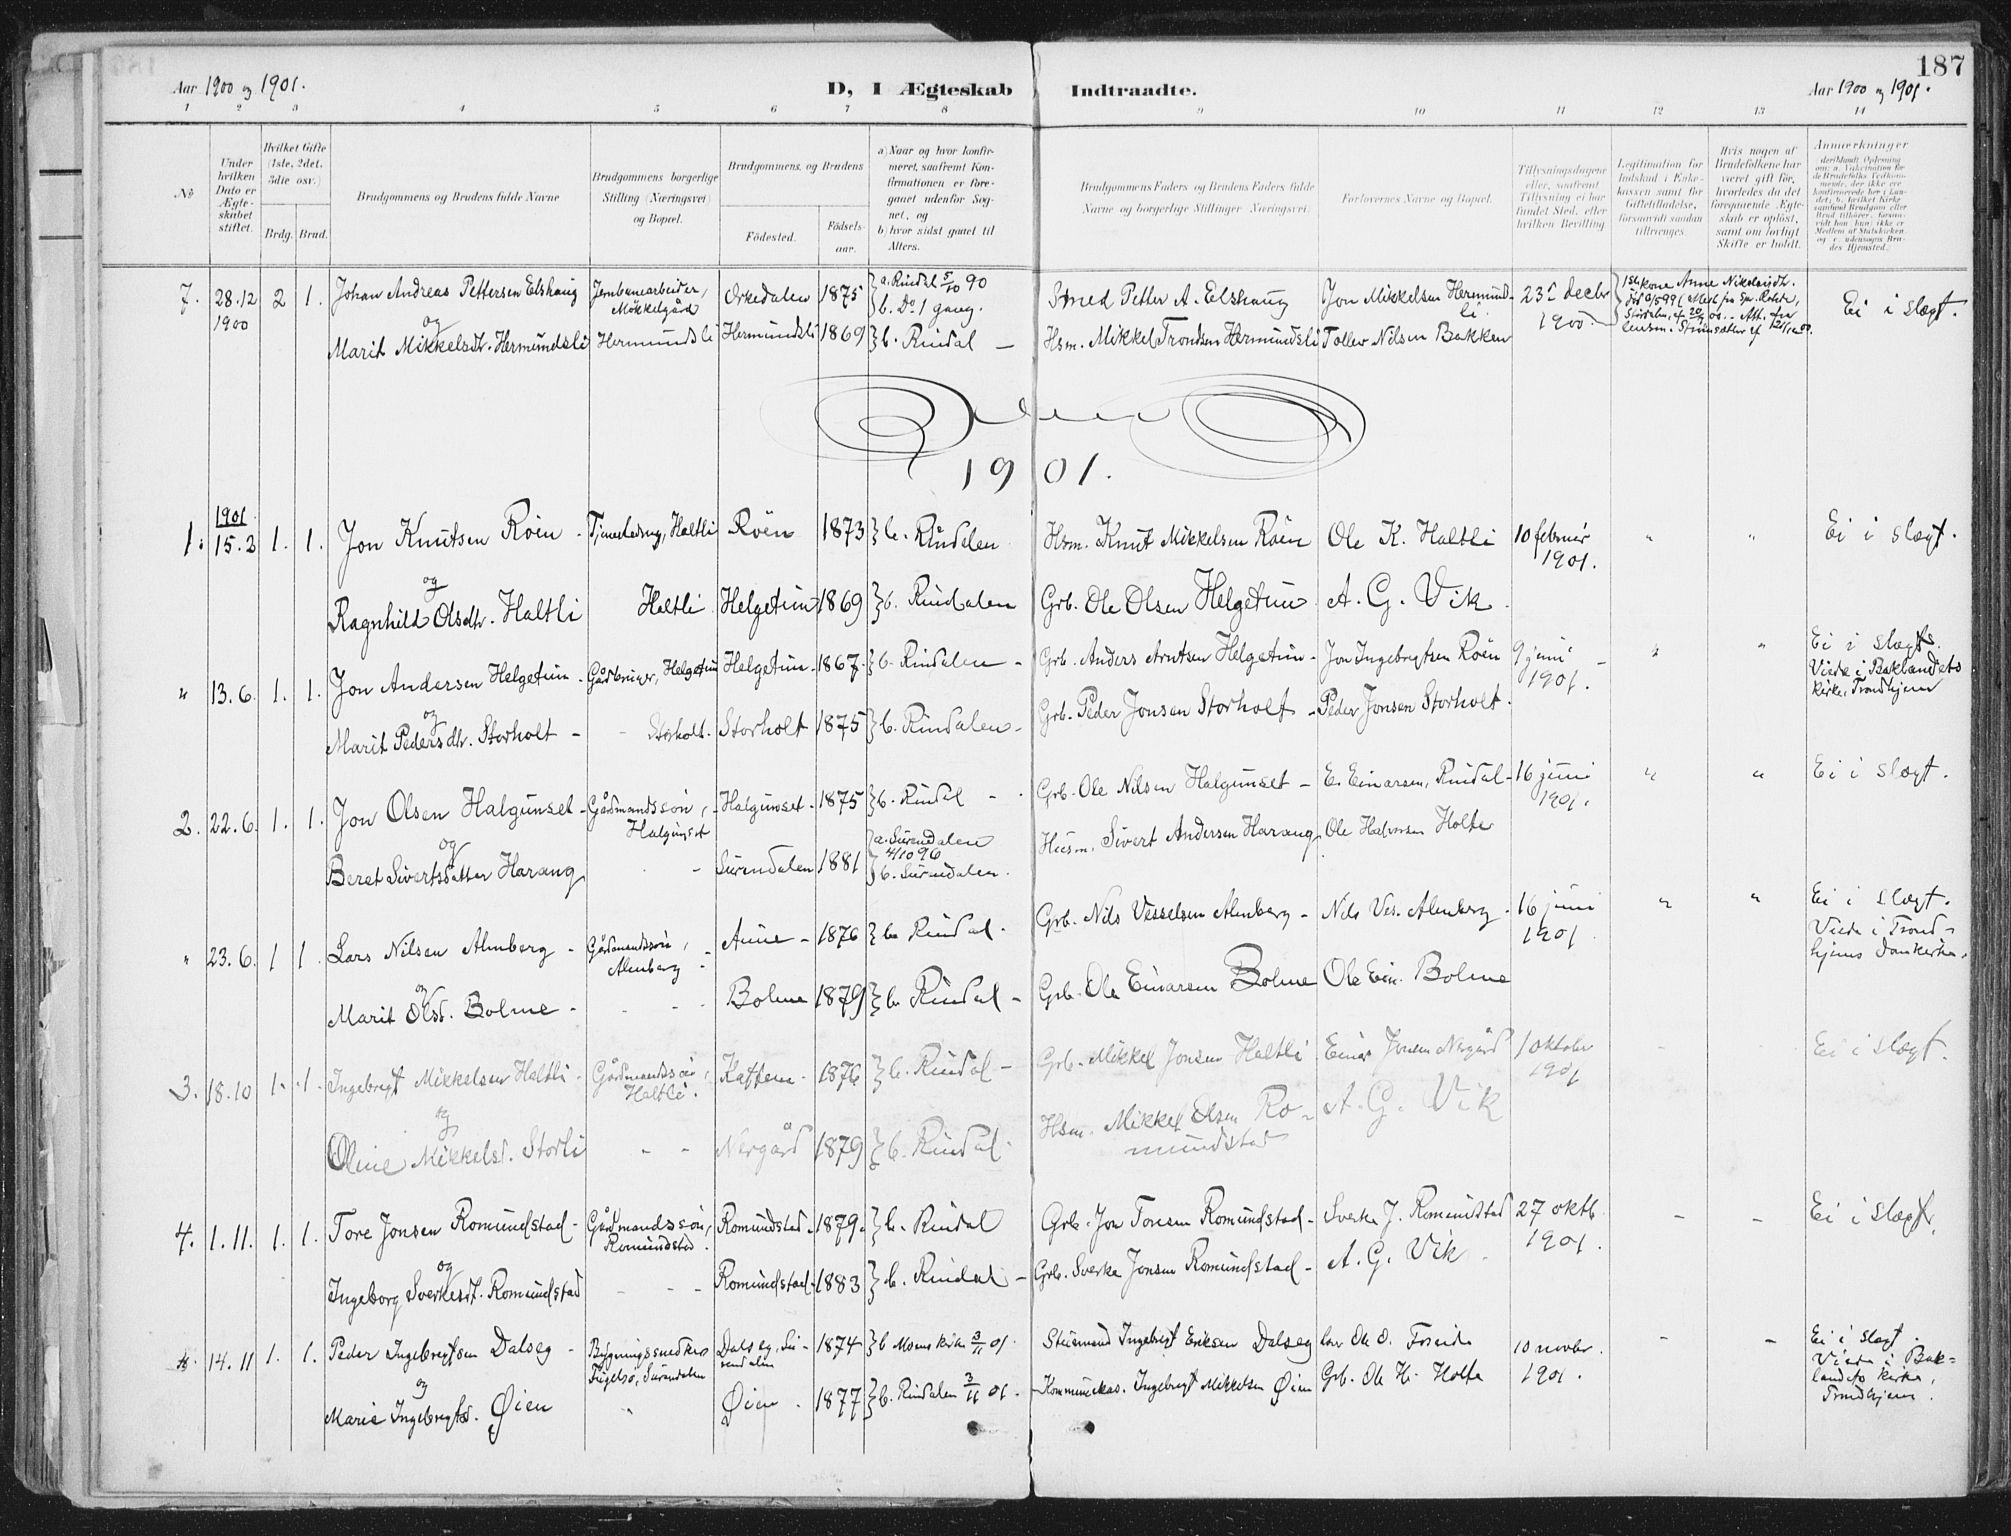 187
Aar 1900 og 1901.
D, I Ægteskab Indtraadte.
Aar 1900 og 1901.
1 2 3 4 5 6 7 8 9 10 11 12 13 14
No
Under hvilken Dato er Ægteskabet stiftet.
Hvilket Gifte (1ste, 2det, 3die osv.)
Brdg. Brud.
Brudgommens og Brudens fulde Navne
Brudgommens borgerlige Stilling (Næringsvei) og Bopæl.
Brudgommens og Brudens
Fødested.
Fødselsaar.
a) Naar og hvor konfirmeret, saafremt Konfirmationen er foregaaet udenfor Sognet, og
b) hvor sidst gaaet til Alters.
Brudgommens Faders og Brudens Faders fulde Navne og borgerlige Stillinger (Næringsvei)
Forlovernes Navne og Bopæl.
Tillysningsdagene eller, saafremt Tillysning ei har fundet Sted, efter hvilken Bevilling
Legitimation for Indskud i Enkekassen samt for Giftetilladelse, forsaavidt saadan tiltrænges.
Hvis nogen af Brudefolkene har været gift før, hvorledes da det foregaaende Ægteskab er opløst, samt om lovligt Skifte er holdt.
Anmærkninger
7. 28.12 1900 2 1. Johan Andreas Pettersen Elshaug Jernbanearbeider, Møkkelgård Orkedalen 1875 a. Rindal 5/10 90 b. Do 1 gang. Smed Petter A. Elshaug Jon Mikkelsen Hermundsli 23de decbr 1900. 1ste kone Anne Nikolaidt. Ei i slægt.
og
Marit Mikkelsdt. Hermundsli Hermundsli Hermundsli 1869 b. Rindal — Hsm. Mikkel Trondsen Hermundsli Tollev Nilsen Bakken
1901.
1901
1. 15.2 1. 1. Jon Knutsen Röen - Tjenestedreng, Haltli Röen 1873 b. Rindalen Hsm. Knut Mikkelsen Röen Ole K. Haltli 10 februar 1901. " " Ei i slægt.
og
Ragnhild Olsdtr. Haltli Haltli Helgetun 1869 b. Rindalen Grb. Ole Olsen Helgetun A. G. Vik.
" 13.6. 1. 1. Jon Andersen Helgetun - Gårdbruger, Helgetun Helgetun - 1867 b. Rindalen - Grb. Anders Arntsen Helgetun - Jon Ingebrigtsen Röen 9 juni 1901. " " Ei i slægt. Viede i Baklandets kirke, Trondhjem
og
Marit Pedersdtr. Storholt - - Storholt. Storholt 1875 b. Rindalen - Grb. Peder Jonsen Storholt - Peder Jonsen Storholt.
2. 22.6. 1. 1. Jon Olsen Halgunset - Gårdmandssøn, Halgunset Halgunset - 1875 b. Rindal - Grb. Ole Nilsen Halgunset - E. Einarsen, Rindal - 16 juni 1901. " " Ei i slægt.
og
Beret Sivertsdatter Harang - Surendalen 1881 a. Surendalen 4/10 96 b. Surendalen. Husm. Sivert Andersen Harang Ole Halvorsen Holte
" 23.6. 1 1. Lars Nilsen Almberg - Gårdmandssøn, Almberg Aune - 1876 b. Rindal. Grb. Nils Vesselsen Almberg - Nils Ves. Almberg - 16 juni 1901 " " Ei i slægt. Viede i Trondhjems domkirke.
og
Marit Olsd. Bolme - - - Bolme 1879 b. Rindal - Grb. Ole Einarsen Bolme Ole Ein. Bolme
3. 18.10 1. 1. Ingebrigt Mikkelsen Haltli - Gårdmandssøn, Haltli. Kattem - 1876 b. Rindal - Grb. Mikkel Jonsen Haltli Einar Jonsen Nergård 1 oktober 1901 - - Ei i slægt.
og
Oline Mikkelsd. Storli - - Nergård 1879 b. Rindal. Hsm. Mikkel Olsen Romundstad A. G. Vik
4. 1.11. 1. 1. Tore Jonsen Romundstad - Gårdmandssøn, Romundstad. Romundstad - 1879. b. Rindal Grb. Jon Toresen Romundstad - Sverke J. Romundstad 27 oktb. 1901. - - Ei i slægt.
og
Ingeborg Sverkesdt. Romundstad - - - Romundstad - 1883 b. Rindal - Grb. Sverke Jonsen Romundstad - A. G. Vik
14.11 1. 1. Peder Ingebrigtsen Dalseg - Bygningssnedker, Surendalen Dalseg, Surendalen 1874 b. Moens kirke 3/11 01. Ingebrigt Eriksen Dalseg 10 novbr. 1901. - - Ei i slægt. Viede i Baklandets kirke, Trondhjem.
og
Marie Ingebrigtsd. Øien " Øien. 1877 b. Rindalen 3/11 01. Kommunekas. Ingebrigt Mikkelsen Øien Grb. Ole H. Holte